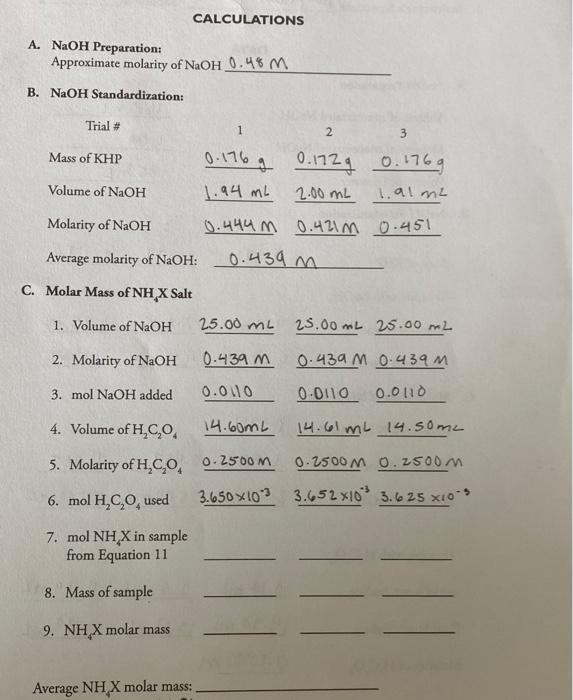 CALCULATIONS
A. NaOH Preparation:
Approximate molarity of NaOH 0.48 M
B. NaOH Standardization:
Trial # 1 2 3
Mass of KHP 0.176 g 0.172g 0.176g
Volume of NaOH 1.94 mL 2.00 mL 1.91 mL
Molarity of NaOH 0.444 M 0.421M 0.451
Average molarity of NaOH: 0.439 M
C. Molar Mass of NH₄X Salt
1. Volume of NaOH 25.00 mL 25.00 mL 25.00 mL
2. Molarity of NaOH 0.439 M 0.439 M 0.439 M
3. mol NaOH added 0.0110 0.0110 0.0110
4. Volume of H₂C₂O₄ 14.60mL 14.61 mL 14.50mL
5. Molarity of H₂C₂O₄ 0.2500M 0.2500M 0.2500M
6. mol H₂C₂O₄ used 3.650×10⁻³ 3.652×10⁻³ 3.625 ×10⁻³
7. mol NH₄X in sample
from Equation 11
8. Mass of sample
9. NH₄X molar mass
Average NH₄X molar mass: